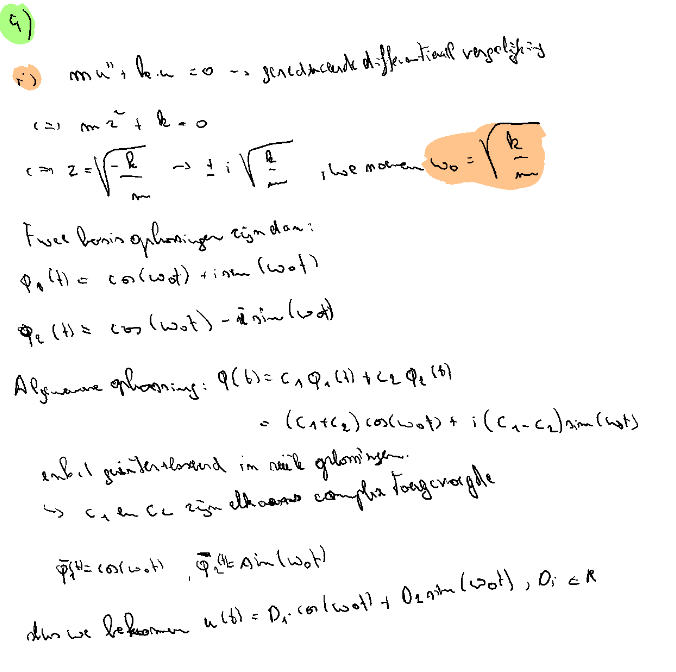 4)
i) mu'' + k.u = 0 → gereduceerde differentiaal vergelijking
<=> mz² + k = 0
<=> z = √(-k/m) → ± i √(k/m) , we noemen ω₀ = √(k/m)
Twee basis oplossingen zijn dan:
φ₁(t) = cos(ω₀t) + i sin(ω₀t)
φ₂(t) = cos(ω₀t) - i sin(ω₀t)
Algemene oplossing: φ(t) = c₁φ₁(t) + c₂φ₂(t)
= (c₁+c₂) cos(ω₀t) + i(c₁-c₂) sin(ω₀t)
enkel geïnteresseerd in reële oplossingen.
↳ c₁ en c₂ zijn elkaars complex toegevoegde
φ̄₁(t) = cos(ω₀t) , φ̄₂(t) = sin(ω₀t)
dus we bekomen u(t) = D₁.cos(ω₀t) + D₂ sin(ω₀t) , Dᵢ ∈ ℝ